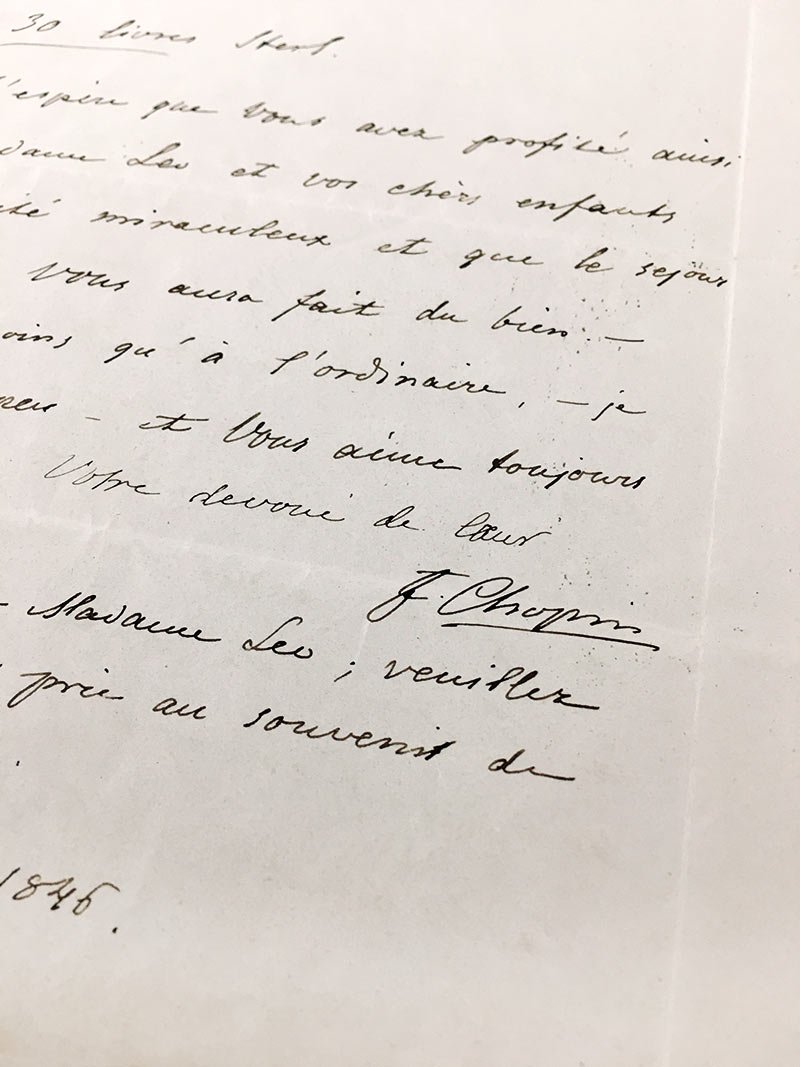 30 livres Sterl.
J'espère que vous avez profité ainsi
Madame Leo et vos chèrs enfants
été miraculeux et que le sejour
Vous aura fait du bien –
moins qu'à l'ordinaire, – je
peu – et Vous aime toujours
Votre devoué de Cœur
F. Chopin
– Madame Leo ; veuillez
prie au souvenir de
1846.